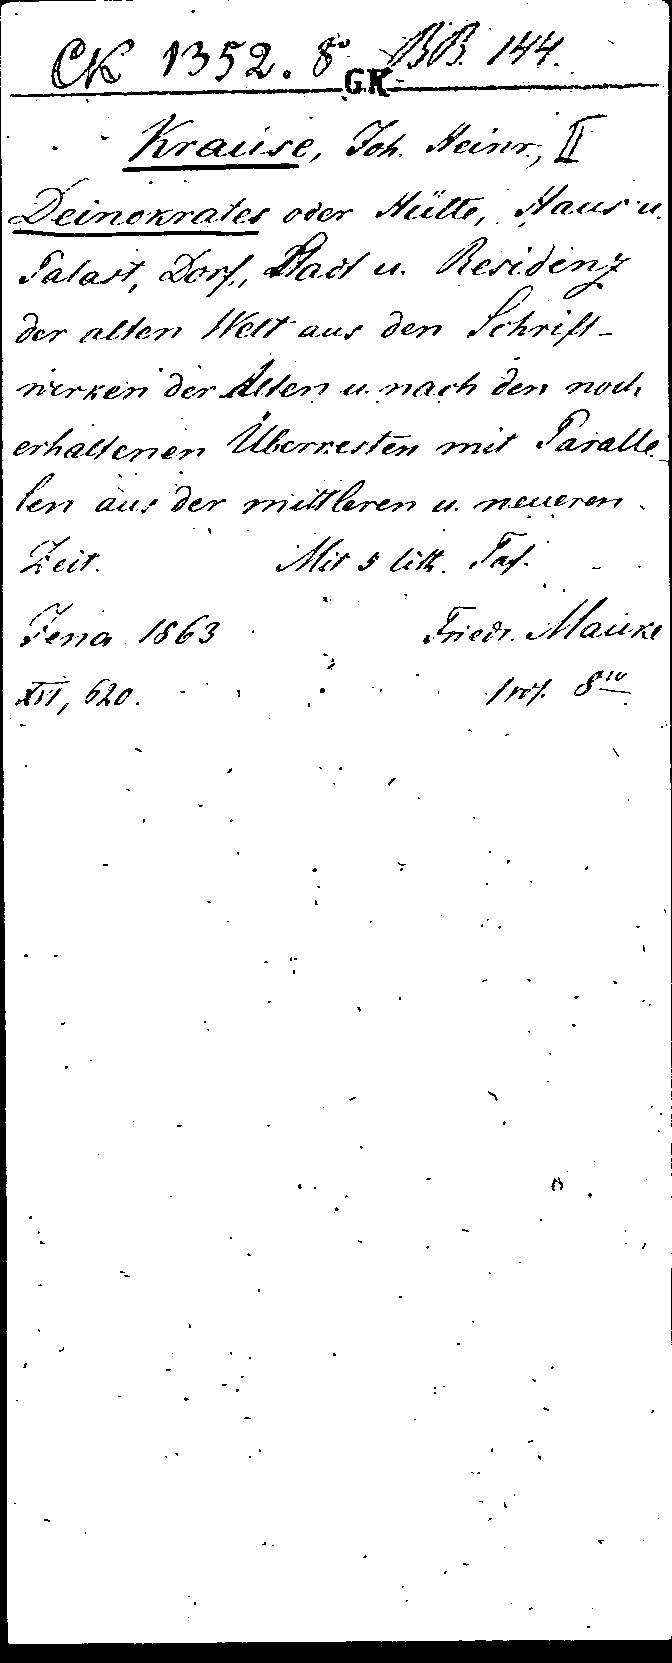 CK 1352. 8° BB. 144.
GK
Krause, Joh. Heinr., II
Deinokrates oder Hütte, Haus u.
Palast, Dorf, Stadt u. Residenz
der alten Welt aus den Schrift-
werken der Alten u. nach den noch
erhaltenen Überresten mit Paralle-
len aus der mittleren u. neueren
Zeit. Mit 5 lith. Taf.
Jena 1863 Friedr. Mauke
XVI, 620. 8